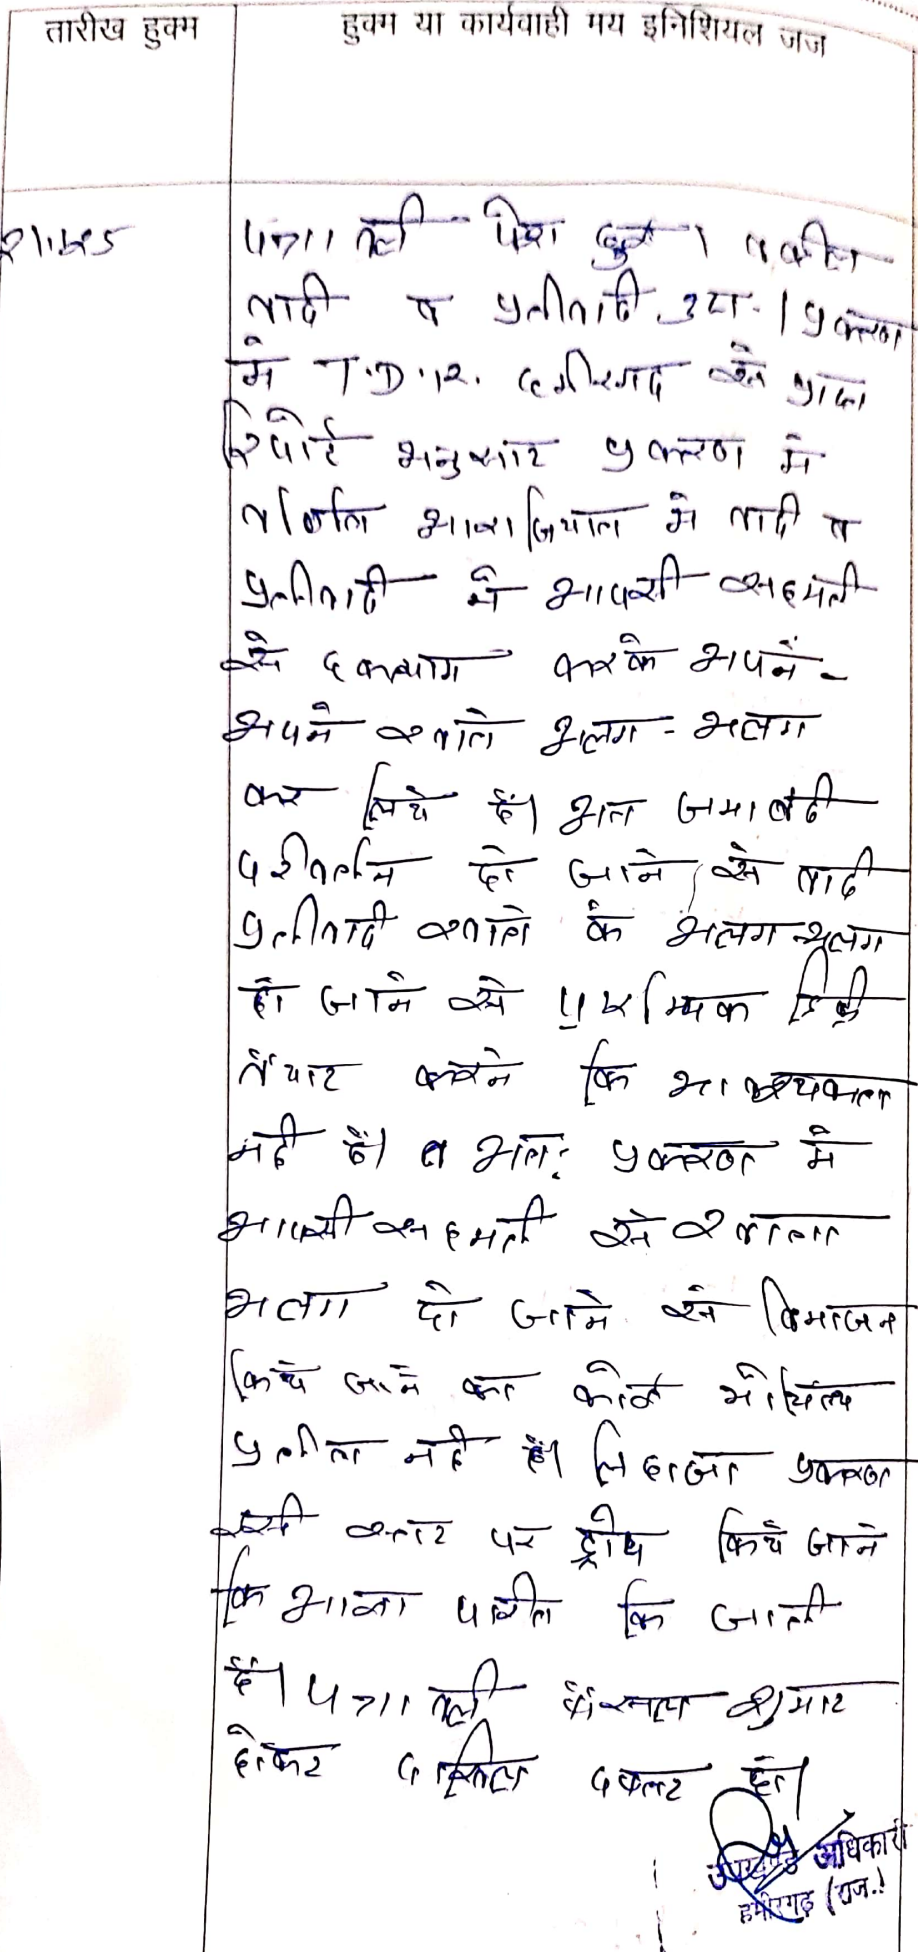 तारीख हुक्म
हुक्म या कार्यवाही मय इनिशियल जज
पत्रावली पेश हुई। वकील
वादी व प्रतीवादी उप.। प्रकरण
मे T.D.R. हमीरगढ से प्राप्त
रिपोर्ट अनुसार प्रकरण मे
वर्णित आराजियात मे वादी व
प्रतीवादी ने आपसी सहमती
से हकत्याग करके अपने-
अपने खाते अलग-अलग
कर लिये हैं। अत जमाबंदी
परीवर्तन हो जाने से वादी
प्रतीवादी खाते के अलग-अलग
हो जाने से प्रारम्भिक डिक्री
तैयार करने कि आवश्यकता
नही हैं। अत: प्रकरण मे
आपसी सहमती से खाता
अलग हो जाने से विभाजन
किये जाने का कोई औचित्य
प्रतीत नही हैं। लिहाजा प्रकरण
इसी स्तर पर ड्रोप किये जाने
कि आज्ञा पारीत कि जाती
हैं। पत्रावली फैसल शुमार
होकर दाखिल दफ्तर हो।
उपखण्ड अधिकारी
हमीरगढ़ (राज.)